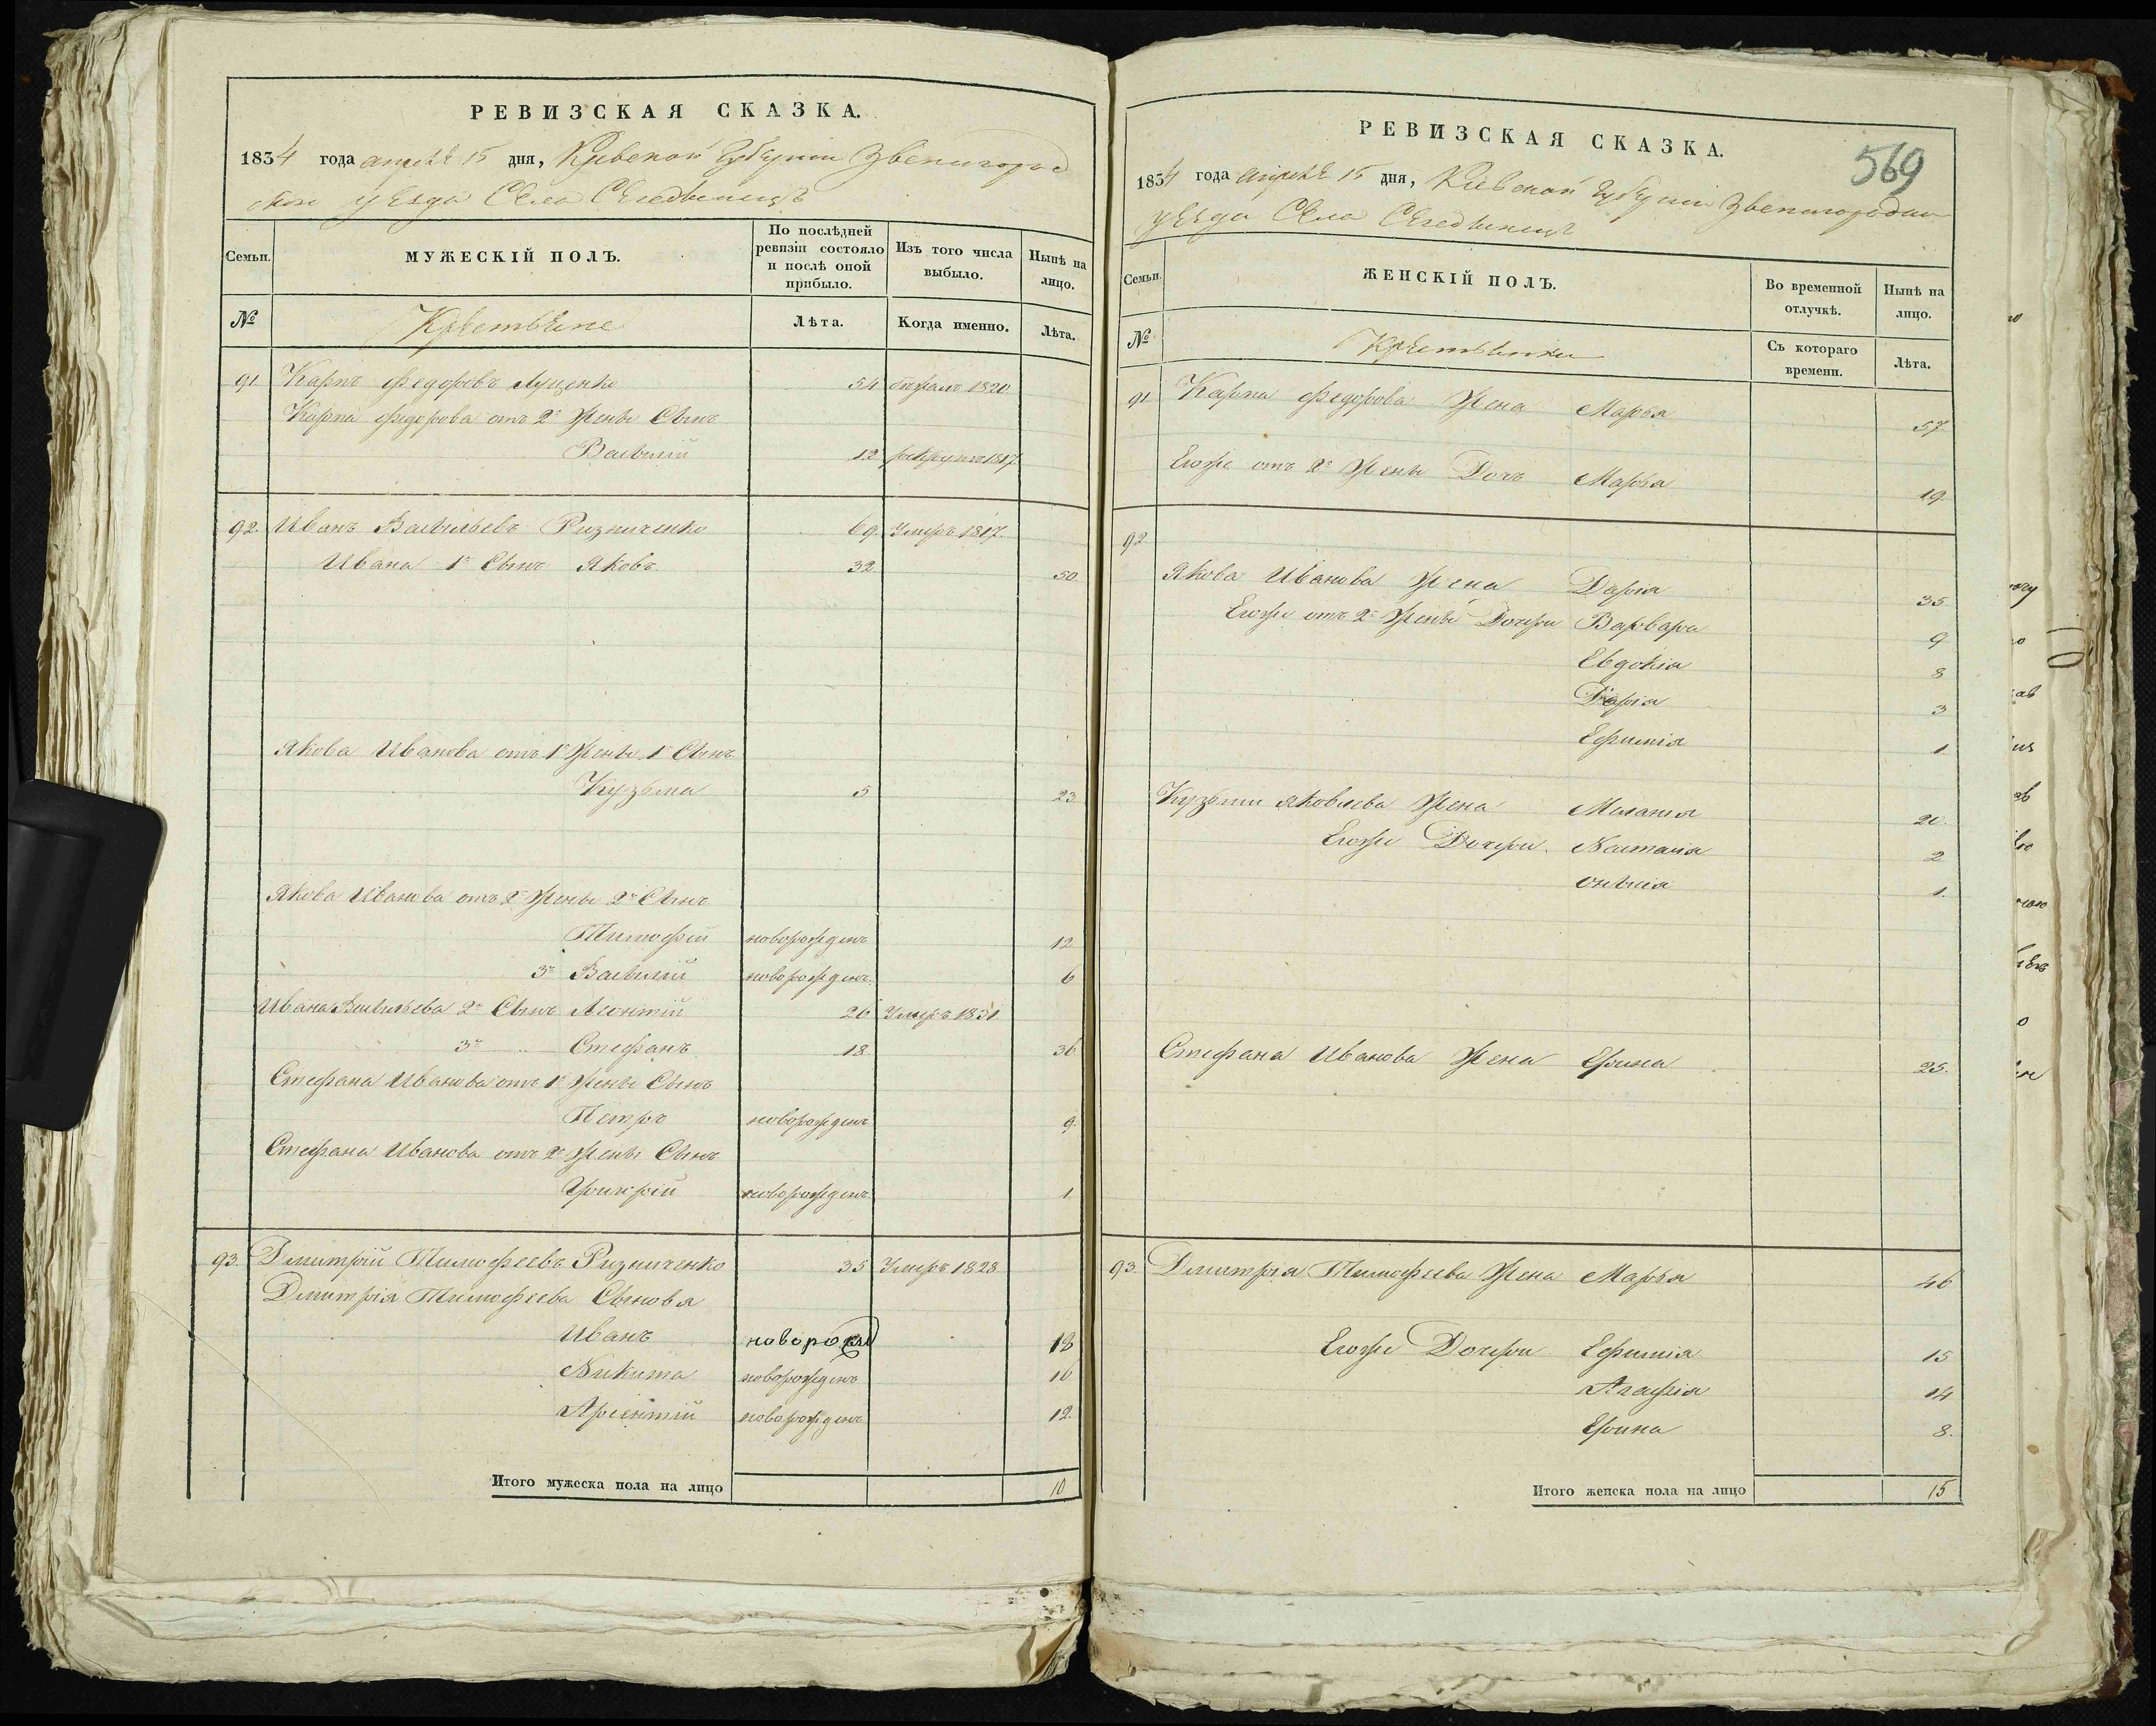 РЕВИЗСКАЯ СКАЗКА.
1834 года апреля 15 дня, Киевской Губернии Звенигород
ского уезда Села
Семьи.
МУЖЕСКІЙ ПОЛЪ.
По послѣдней ревизіи состояло и послѣ оной прибыло.
Изъ того числа выбыло.
Нынѣ на лицо.
№
Крестьяне
Лѣта.
Когда именно.
Лѣта.
91 Карпъ Федоровъ Луценко 54 1820
Карпа Федорова отъ 2й жены Сынъ
Василій 12 рекрутъ 1817
92. Иванъ Васильевъ Ризниченко 69. Умеръ 1817.
Ивана 1й Сынъ Яковъ 32 50.
Якова Иванова отъ 1й жены 1й Сынъ
Кузьма 5 23.
Якова Иванова отъ 2й жены 2й Сынъ
Тимофей новорожденъ 12
3й Василій новорожденъ 6
Ивана Васильева 2й Сынъ Леонтій 26 Умеръ 1831.
3й Стефанъ 18. 36
Стефана Иванова отъ 1й жены Сынъ
Петръ новорожденъ 9.
Стефана Иванова отъ 2й жены Сынъ
Григрій новорожденъ 1
93. Дмитрій Тимофеевъ Ризниченко 35 Умеръ 1828
Дмитрія Тимофеева Сыновя
Иванъ 18
Никита новорожденъ 16
Арсентій новорожденъ 12.
Итого мужеска пола на лицо 10
РЕВИЗСКАЯ СКАЗКА.
569
1834 года апреля 15 дня, Киевской Губерніи Звенигородска
уезда Села
Семьи.
ЖЕНСКІЙ ПОЛЪ.
Во временной отлучкѣ.
Нынѣ на лицо.
№
Крестьянки
Съ котораго времени.
Лѣта.
91 Карпа Федорова Жена Марья 57.
Егоже отъ 2й Жены Дочъ Марья 19.
92
Якова Иванова Жена Дария 35.
Егоже отъ 2й Жены Дочери Варвара 9
Евдокія 8
Дарія 3
Ефимія 1
Кузьми Яковлева Жена Меланія 20.
Егоже Дочери. Настасія 2
1.
Стефана Иванова Жена Ерина 25.
93. Дмитрія Тимофеева Жена Марья 46
Егоже Дочери Ефимія 15
Агафія 14
Ерина 8.
Итого женска пола на лицо 15